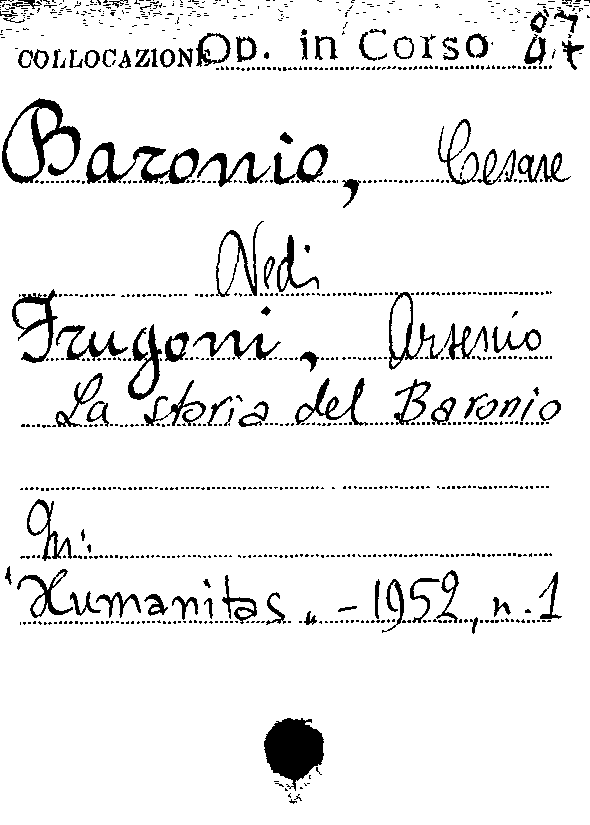 COLLOCAZIONE Op. in Corso 87
Baronio, Cesare
Vedi
Frugoni, Arsenio
La storia del Baronio
In:
"Humanitas" - 1952, n. 1